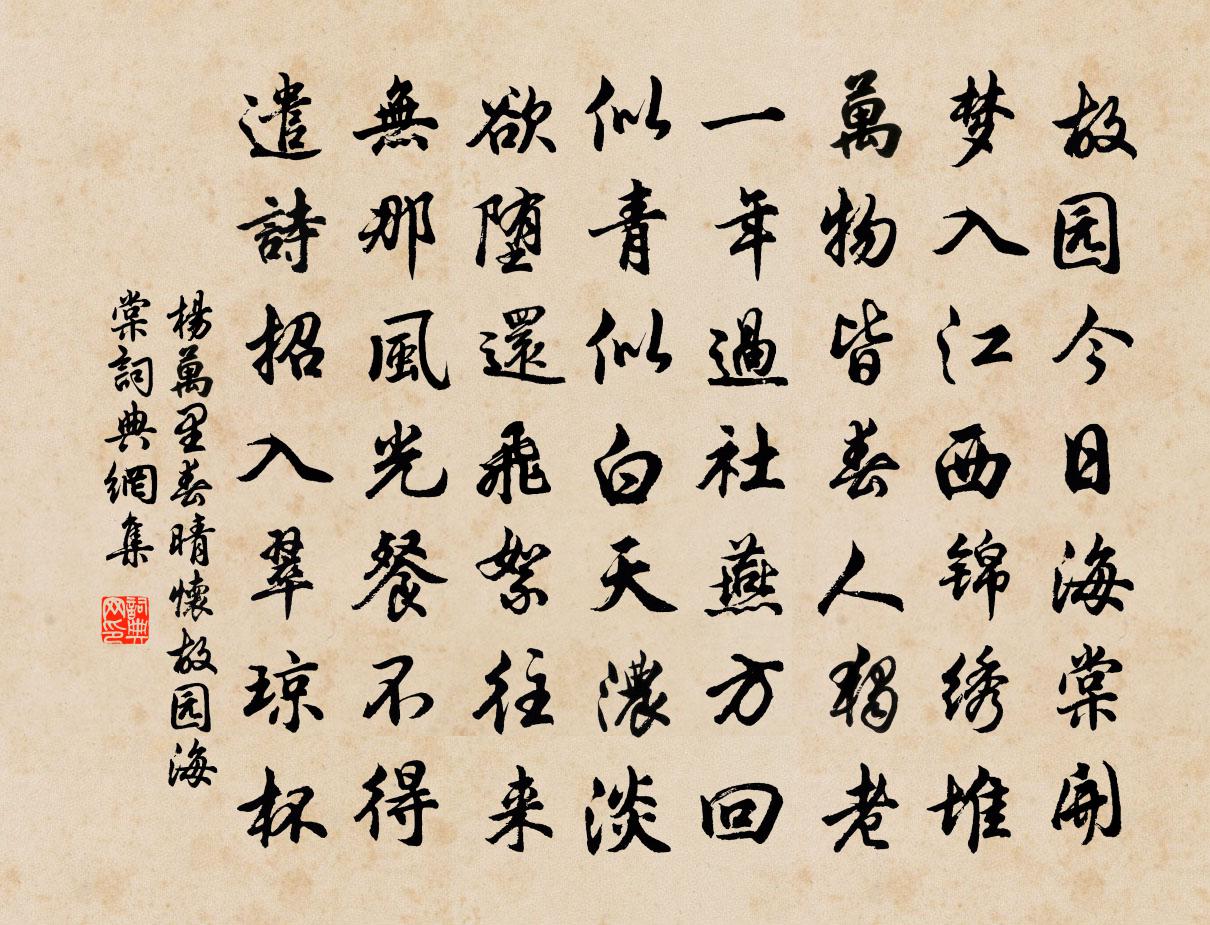 故园今日海棠開
梦入江西锦绣堆
萬物皆春人獨老
一年過社燕方回
似青似白天濃淡
欲堕還飛絮往来
無那風光餐不得
遣詩招入翠琼杯
楊萬里春晴懷故园海
棠詞典網集
詞典网印